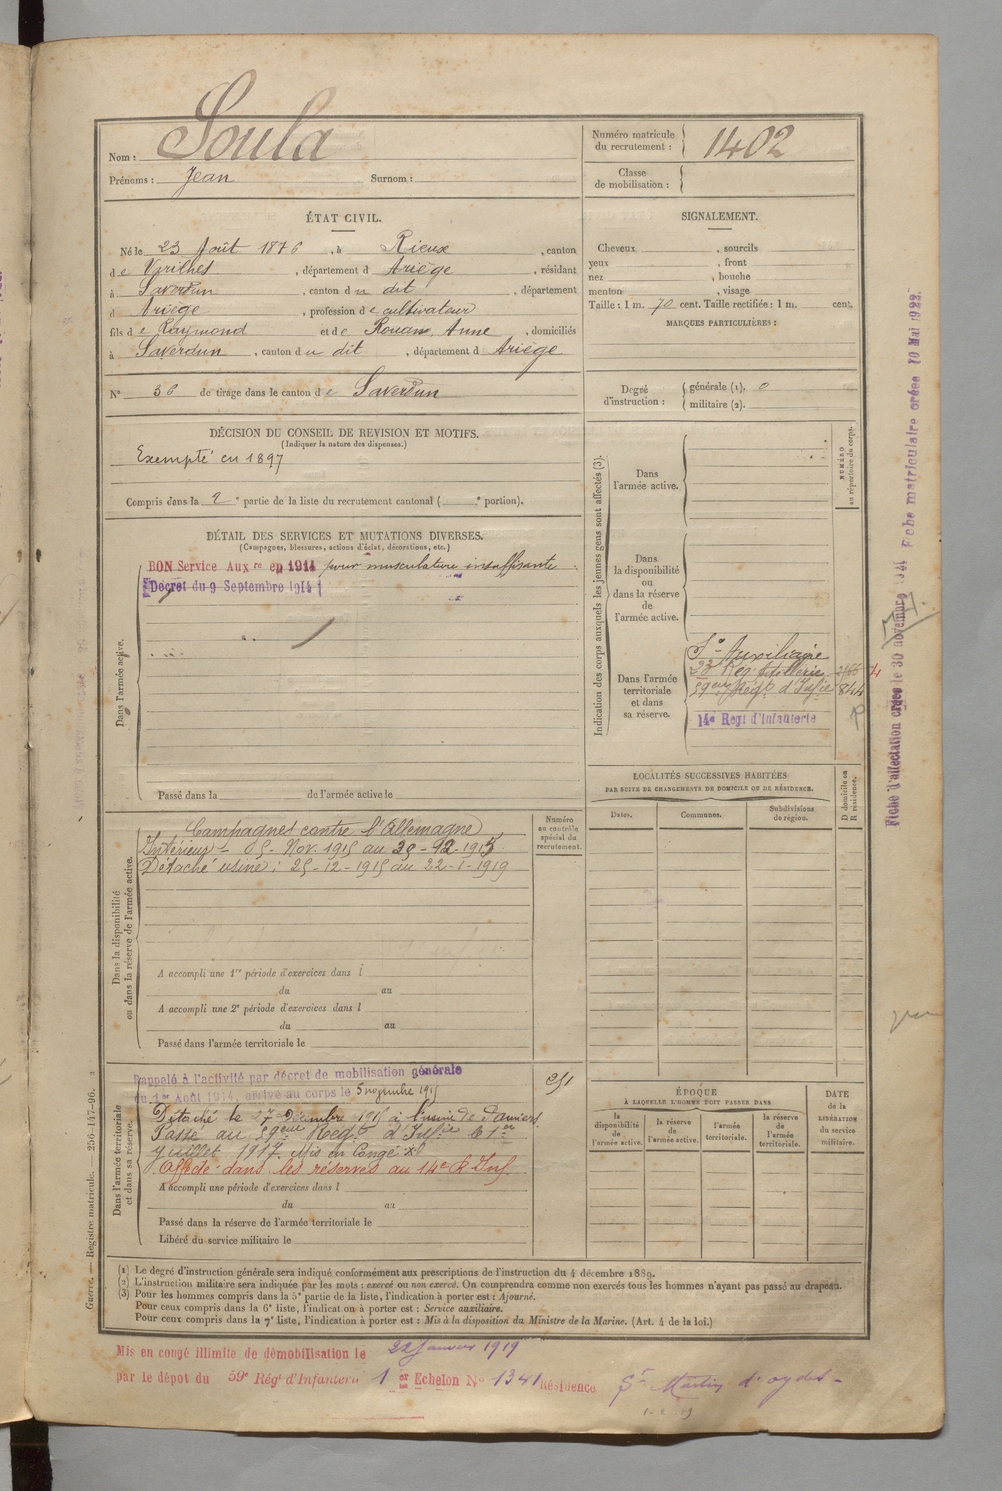 Nom : Soula
Prénoms : Jean Surnom :
Numéro matricule du recrutement : 1402
Classe de mobilisation :
ÉTAT CIVIL.
Né le 23 Août 1876, à Rieux, canton
de Varilhes, département d Ariège, résidant
à Saverdun, canton du dit, département
d Ariège, profession de cultivateur
fils de Raymond et de Rouan, Anne, domiciliés
à Saverdun, canton du dit, département d Ariège
N° 36 de tirage dans le canton de Saverdun
SIGNALEMENT.
Cheveux , sourcils
yeux , front
nez , bouche
menton , visage
Taille : 1 m. 70 cent. Taille rectifiée : 1 m. cent.
MARQUES PARTICULIÈRES :
Degré d'instruction : générale (1). 0
militaire (2).
DÉCISION DU CONSEIL DE REVISION ET MOTIFS.
(Indiquer la nature des dispenses.)
Exempté en 1897
Compris dans la 2e partie de la liste du recrutement cantonal ( e portion).
DÉTAIL DES SERVICES ET MUTATIONS DIVERSES.
(Campagnes, blessures, actions d'éclat, décorations, etc.)
BON Service Aux re en 1914 pour musculature insuffisante
Décret du 9 Septembre 1914
Dans l'armée active.
Passé dans la de l'armée active le
Dans la disponibilité
ou dans la réserve de l'armée active.
Numéro
au contrôle
spécial du
recrutement.
Campagnes contre l'Allemagne
Intérieur - 05. Nov. 1915 au 25-12-1915
Détaché usine : 25-12-1915 au 22-1-1919
A accompli une 1re période d'exercices dans l
du au
A accompli une 2e période d'exercices dans l
du au
Passé dans l'armée territoriale le
Dans l'armée territoriale
et dans sa réserve.
Rappelé à l'activité par décret de mobilisation générale
du 1er Août 1914, arrivé au corps le 5 novembre 1915
251
Détaché le 27 Décembre 1915 à l'usine de Pamiers
Passé au 59eme Régt d'Infie le 1er
juillet 1917. Mis en congé
Affecté dans les réserves au 14e R Inf.
A accompli une période d'exercices dans l
du au
Passé dans la réserve de l'armée territoriale le
Libéré du service militaire le
Indication des corps auxquels les jeunes gens sont affectés (3).
NUMÉRO
au répertoire du corps.
Dans
l'armée active.
Dans
la disponibilité
ou
dans la réserve
de
l'armée active.
Dans l'armée
territoriale
et dans
sa réserve.
Sce Auxiliaire
23 Reg. Artillerie
59eme Régt d'Infie 844
14e Regt d'Infanterie
LOCALITÉS SUCCESSIVES HABITÉES
PAR SUITE DE CHANGEMENTS DE DOMICILE OU DE RÉSIDENCE.
D domicile ou
R résidence.
Dates. Communes. Subdivisions de région.
ÉPOQUE
À LAQUELLE L'HOMME DOIT PASSER DANS
la disponibilité de l'armée active. la réserve de l'armée active. l'armée territoriale. la réserve de l'armée territoriale.
DATE de la LIBÉRATION du service militaire.
Fiche d'affectation créée le 30 novembre 1921 Fiche matriculaire créée 10 Mai 1922.
Guerre. — Registre matricule. — 256-147-96.
(1) Le degré d'instruction générale sera indiqué conformément aux prescriptions de l'instruction du 4 décembre 1889.
(2) L'instruction militaire sera indiquée par les mots : exercé ou non exercé. On comprendra comme non exercés tous les hommes n'ayant pas passé au drapeau.
(3) Pour les hommes compris dans la 5e partie de la liste, l'indication à porter est : Ajourné.
Pour ceux compris dans la 6e liste, l'indication à porter est : Service auxiliaire.
Pour ceux compris dans la 7e liste, l'indication à porter est : Mis à la disposition du Ministre de la Marine. (Art. 4 de la loi.)
Mis en congé illimité de démobilisation le 22 Janvier 1919
par le dépôt du 59e Régt d'Infanterie 1er Echelon No 1341 Résidence St Martin d'oydes